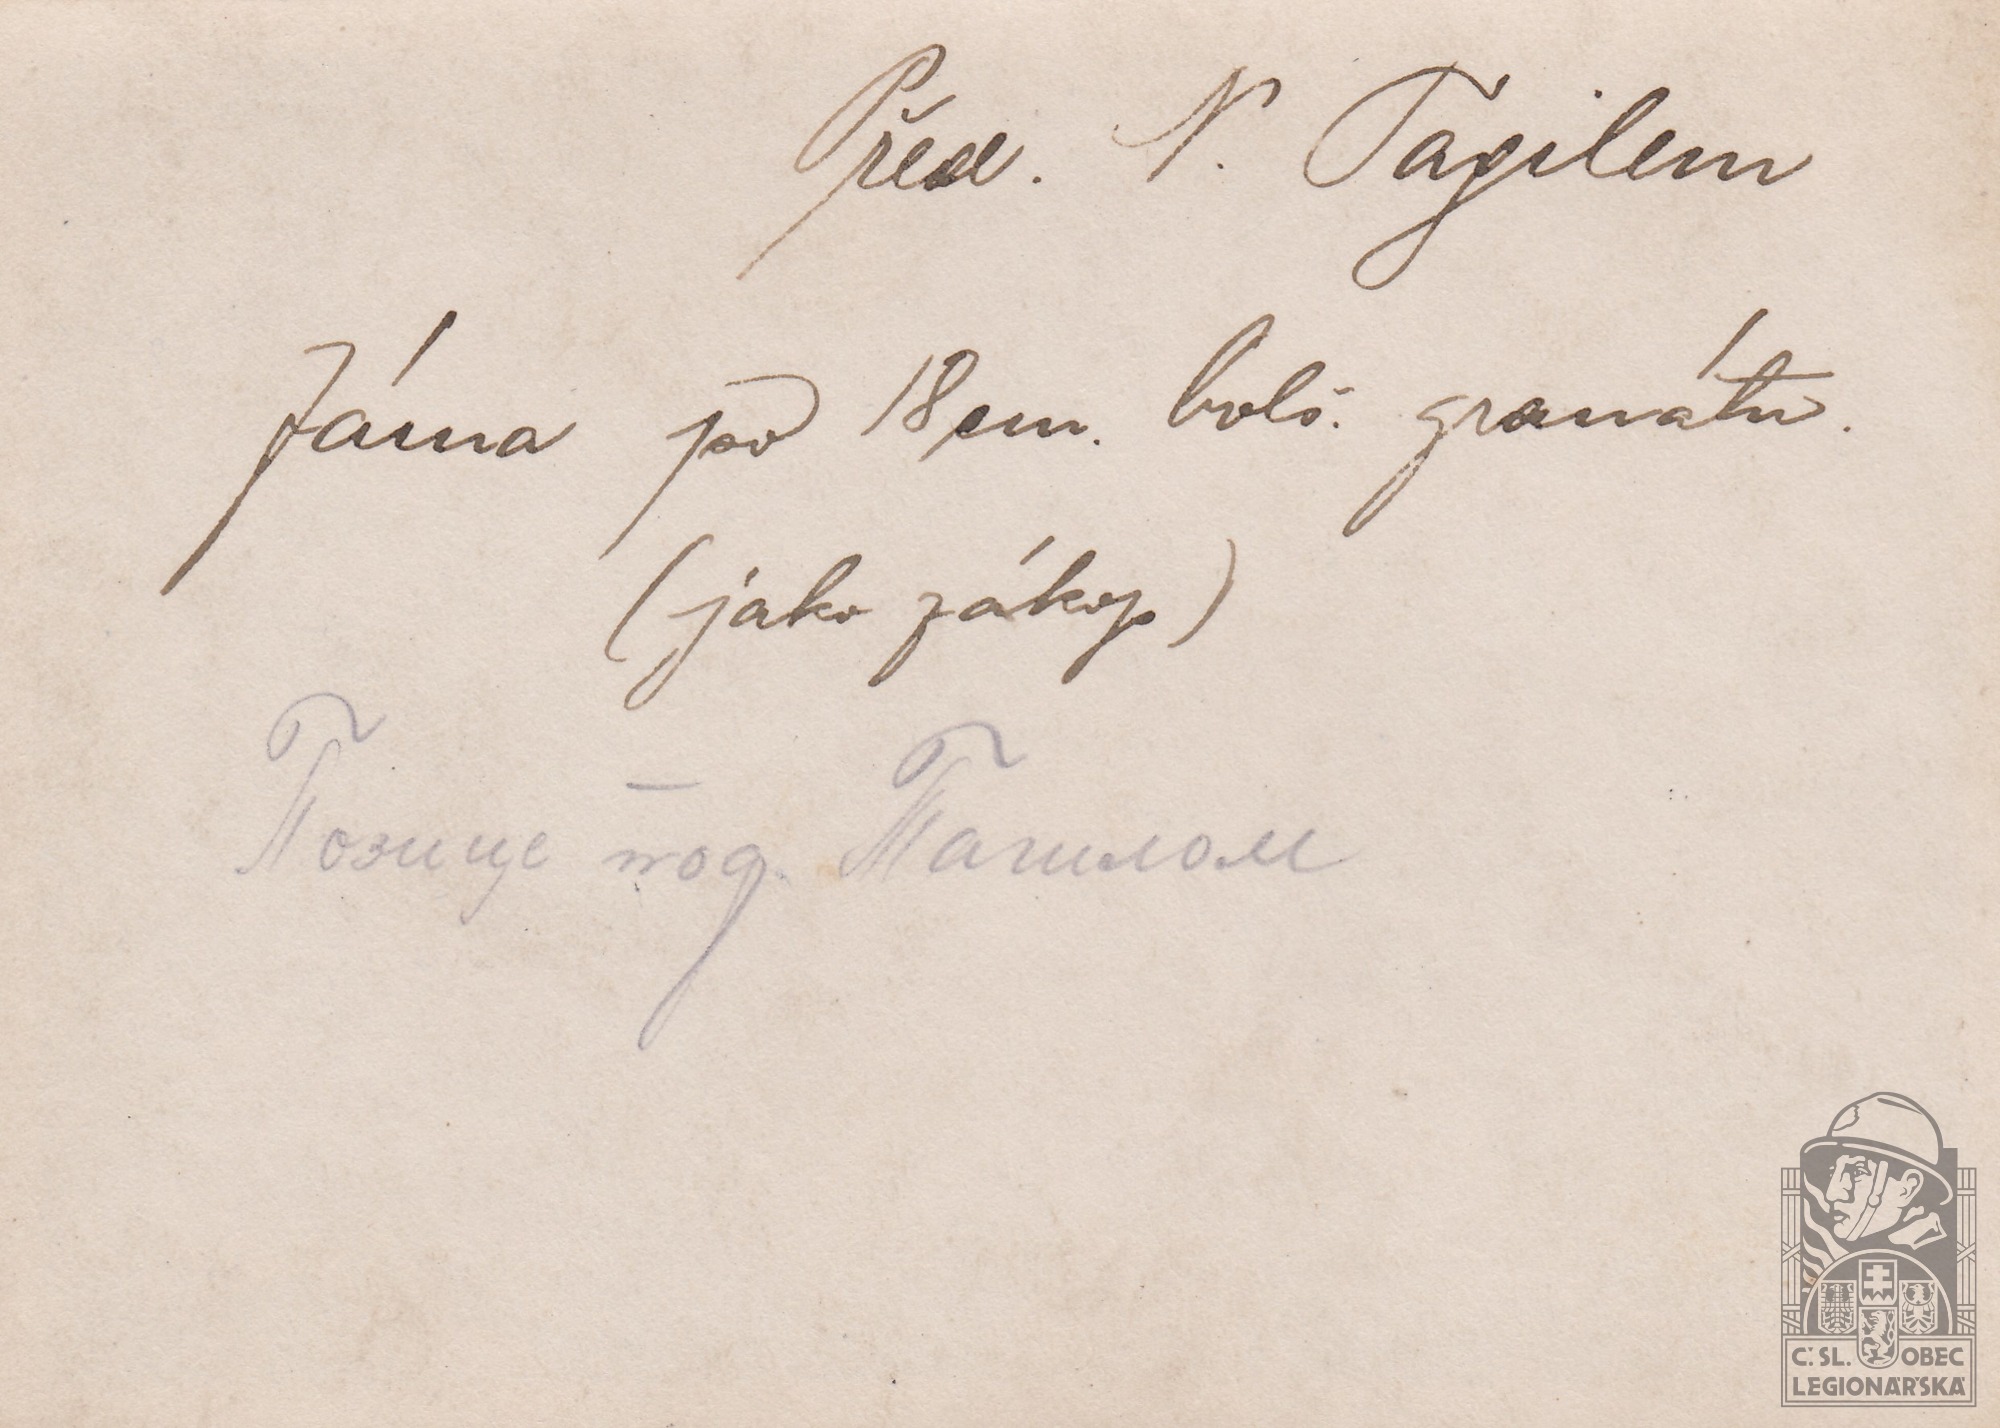 Před. N. Tagilem
Jáma po 18 cm. bolš. granátu.
(jako zákop)
Позице под Тагилом
Č. SL. OBEC
LEGIONÁŘSKÁ